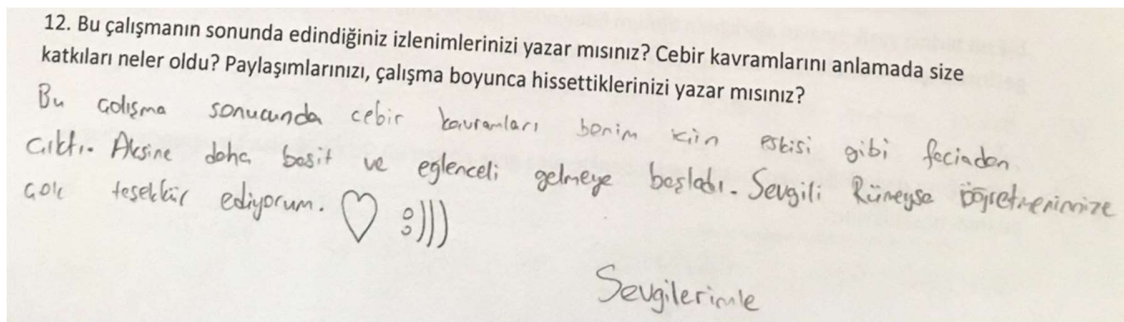 12. Bu çalışmanın sonunda edindiğiniz izlenimlerinizi yazar mısınız? Cebir kavramlarını anlamada size
katkıları neler oldu? Paylaşımlarınızı, çalışma boyunca hissettiklerinizi yazar mısınız?
Bu çalışma sonucunda cebir kavramları benim için eskisi gibi faciadan
çıktı. Aksine daha basit ve eğlenceli gelmeye başladı. Sevgili Rümeysa öğretmenimize
çok teşekkür ediyorum. ♡ :)))
Sevgilerimle